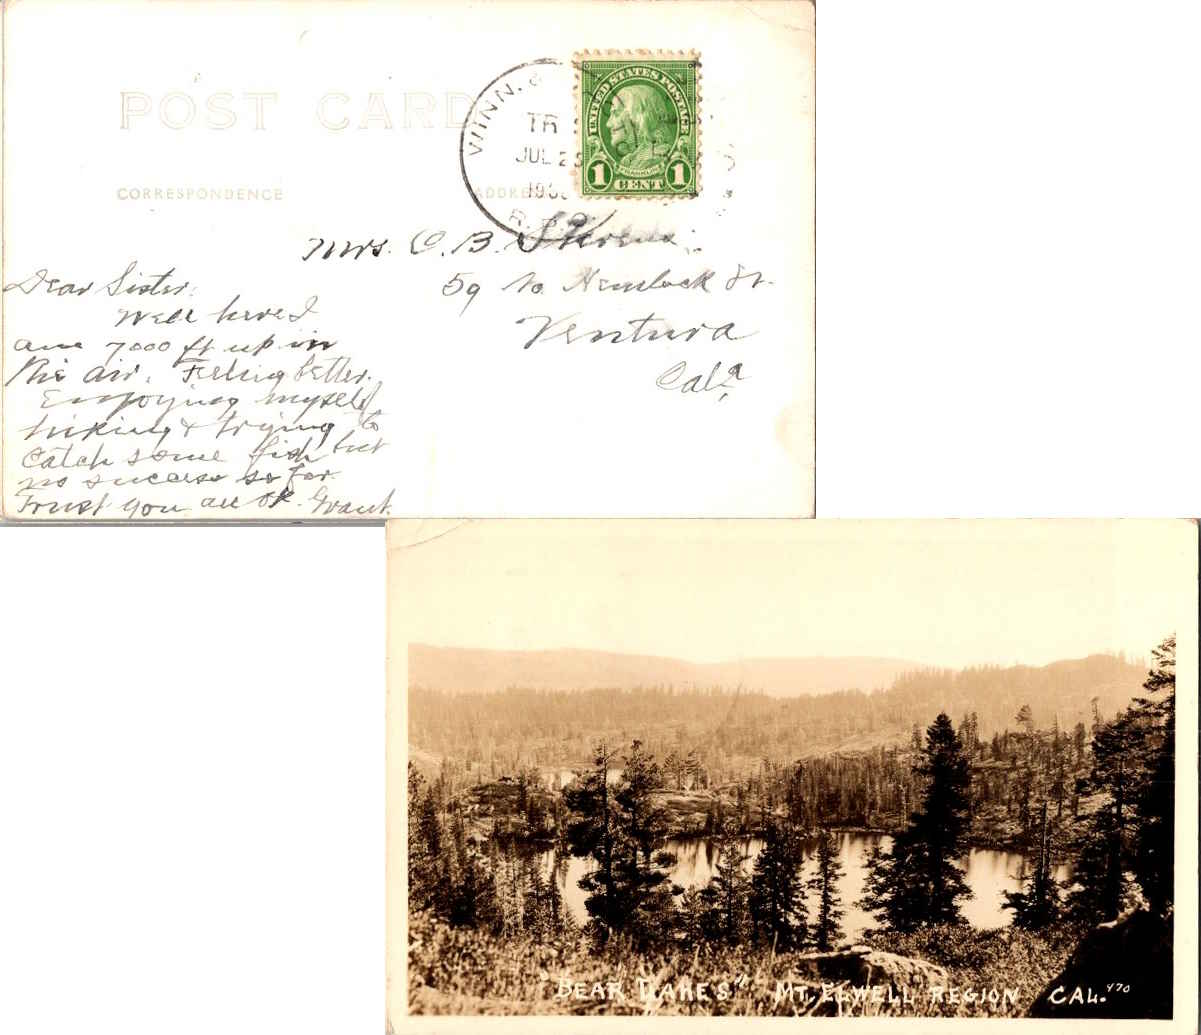 POST CARD
CORRESPONDENCE
ADDRE
WINN. &
TR
JUL 25
19
R.P.O.
UNITED STATES POSTAGE
FRANKLIN
1 CENT 1
Mrs. C. B. Stevens
59 No Hemlock St.
Ventura
Cala
Dear Sister:
Well here I
am 7000 ft up in
the air. Feeling better.
Enjoying myself
hiking & trying to
catch some fish but
no success so far
Trust you are OK. Grant.
"BEAR LAKES" MT. ELWELL REGION CAL. 470